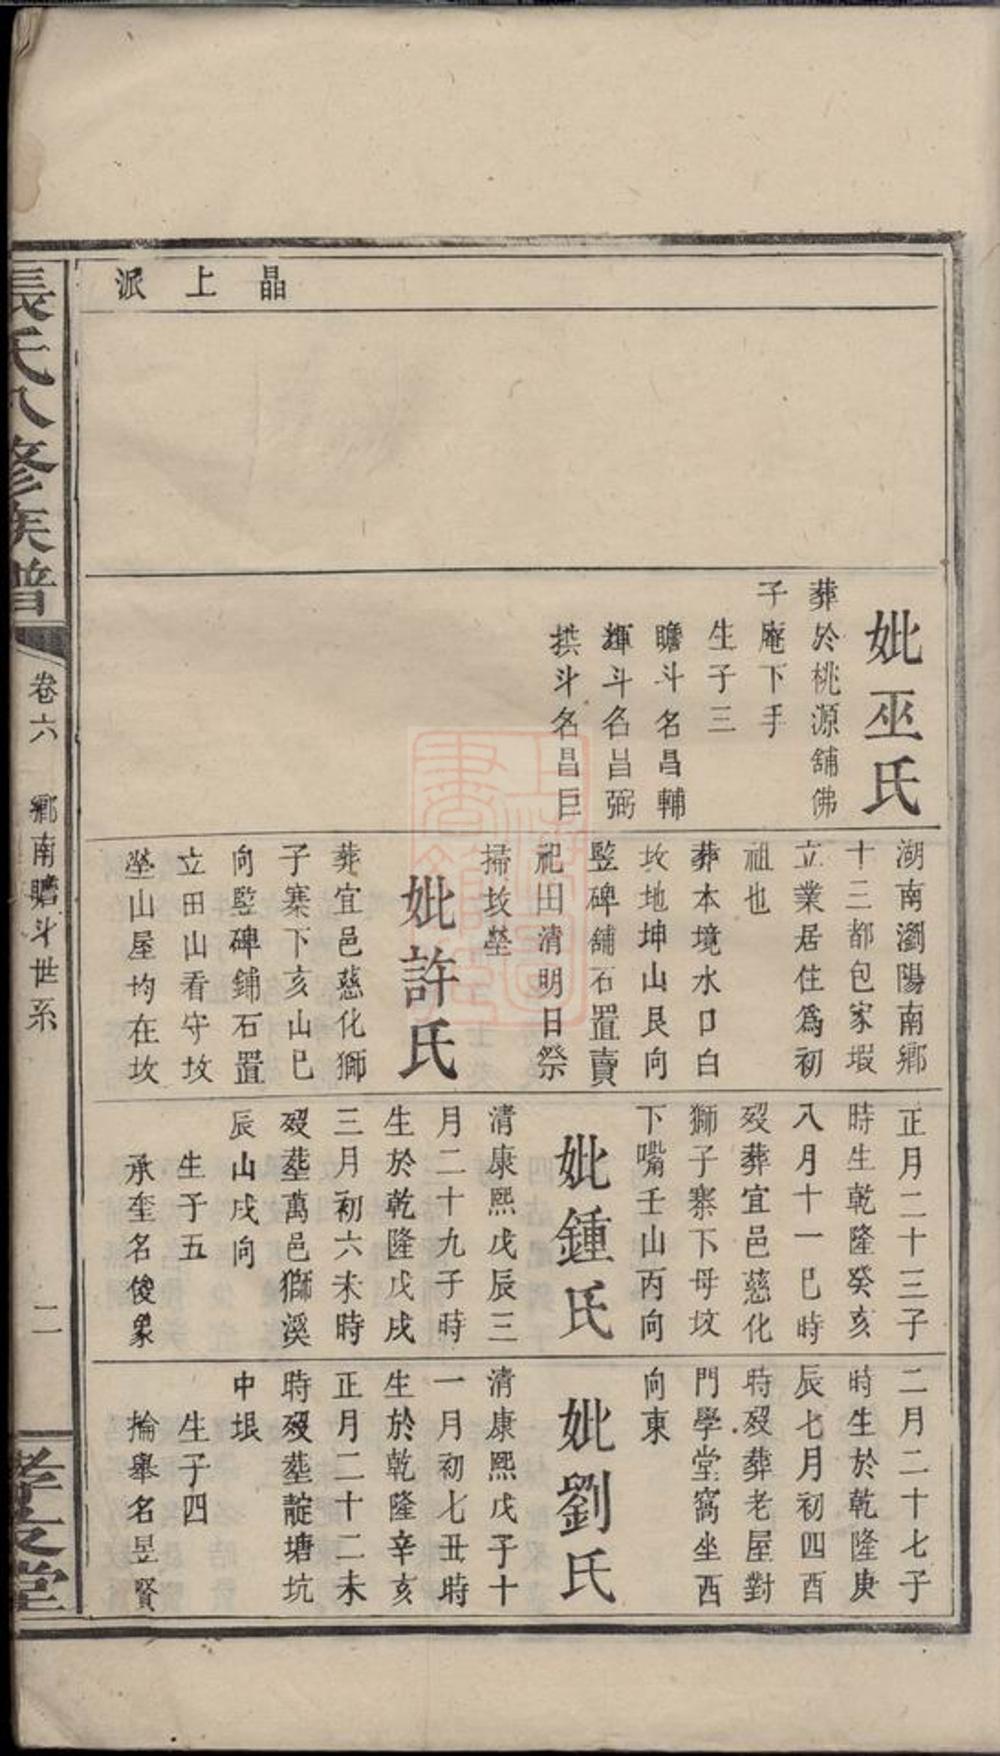 晶上派
妣巫氏
葬於桃源舖佛
子庵下手
生子三
瞻斗名昌輔
輝斗名昌弼
拱斗名昌巨
湖南瀏陽南鄉
十三都包家塅
立業居住為初
祖也
葬本境水口白
坟地坤山艮向
豎碑舖石置賣
祀田清明日祭
掃坟塋
妣許氏
葬宜邑慈化獅
子寨下亥山巳
向豎碑鋪石置
立田山看守坟
塋山屋均在坟
正月二十三子
時生乾隆癸亥
八月十一巳時
歿葬宜邑慈化
獅子寨下母坟
下嘴壬山丙向
妣鍾氏
清康熙戊辰三
月二十九子時
生於乾隆戊戌
三月初六未時
歿塟萬邑獅溪
辰山戌向
生子五
承奎名俊象
二月二十七子
時生於乾隆庚
辰七月初四酉
時歿葬老屋對
門學堂窩坐西
向東
妣劉氏
清康熙戊子十
一月初七丑時
生於乾隆辛亥
正月二十二未
時歿塟靛塘坑
中垠
生子四
掄舉名昱賢
張氏八修族譜
卷六
鄉南瞻斗世系
二
孝友堂